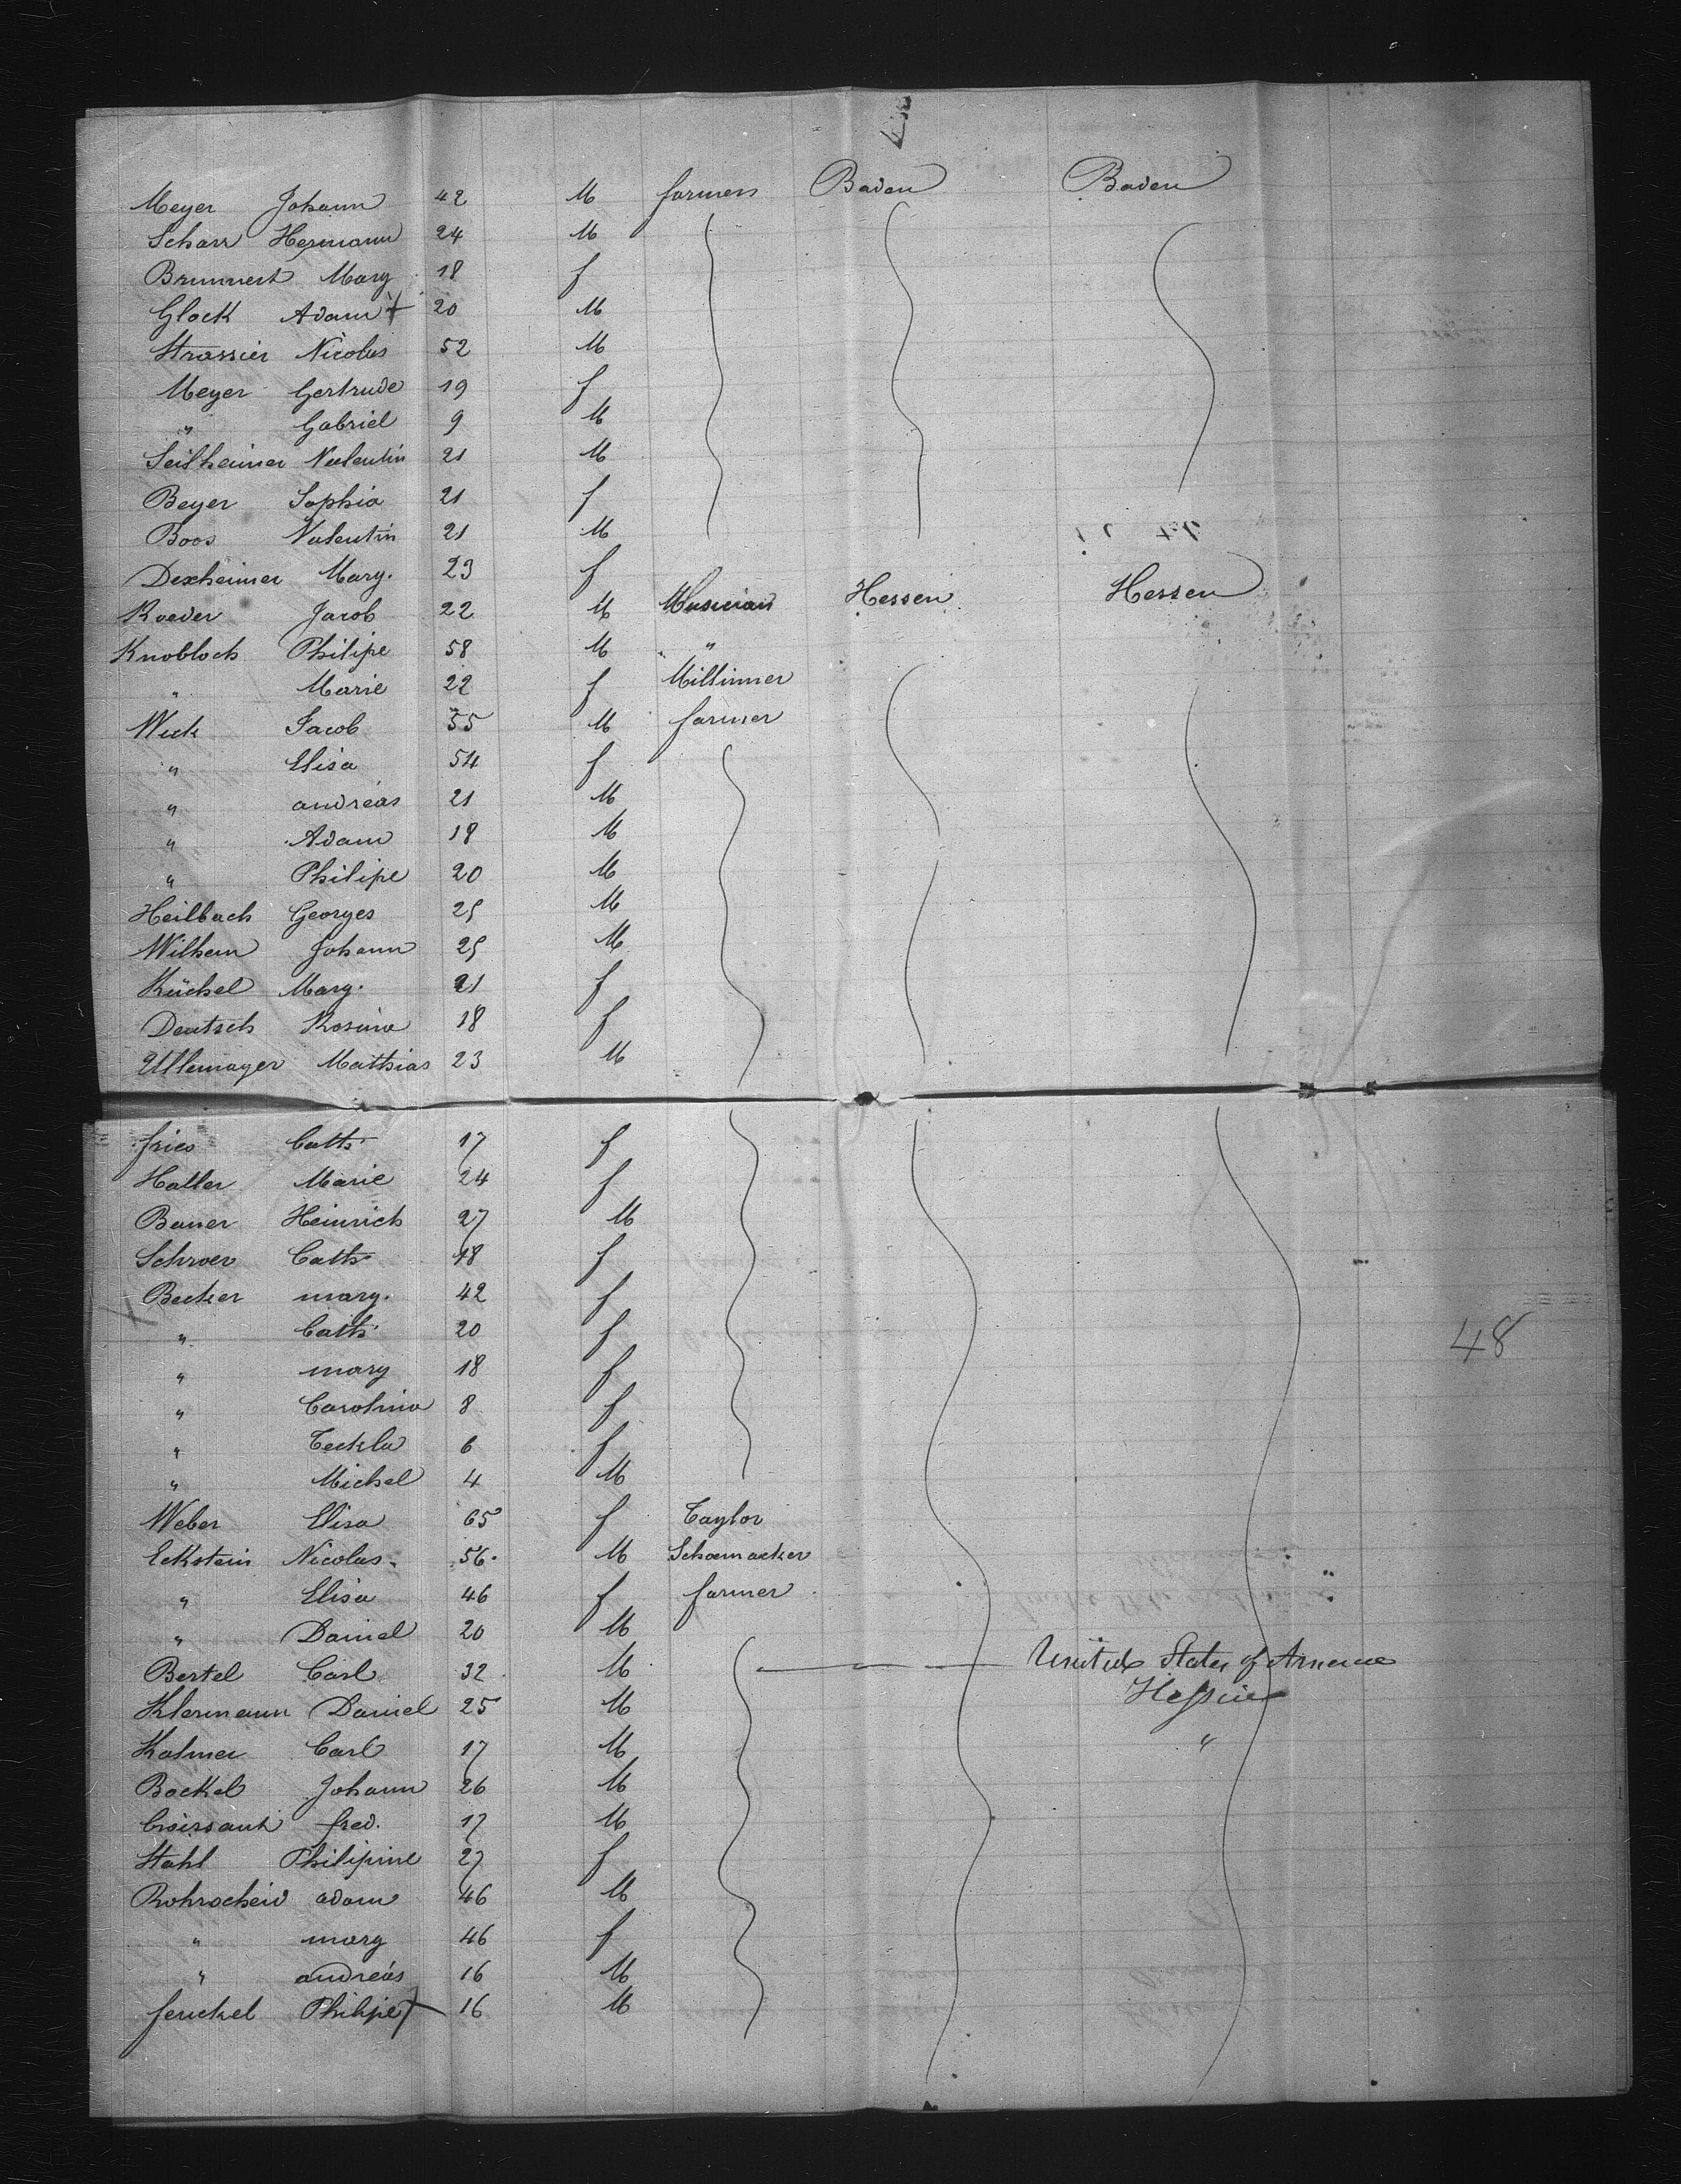 Meyer Johann 42 M farmers Baden Baden
Scharr Hermann 24 M
Brunnert Mary 18 f
Glock Adam + 20 M
Strassier Nicolas 52 M
Meyer Gertrude 19 f
" Gabriel 9 M
Seilheimer Valentin 21 M
Beyer Sophia 21 f
Boos Valentin 21 M
Dexheimer Mary. 23 f
Roeder Jacob 22 M Musician Hessen Hessen
Knobloch Philipe 58 M "
" Marie 22 f Millinner
Weck Jacob 55 M farmer
" Elisa 54 f
" andreas 21 M
" Adam 18 M
" Philipe 20 M
Heilbach Georges 25 M
Wilhem Johann 25 M
Küchel Marg. 21 f
Deutsch Rosina 18 f
Ullemayer Mathias 23 M
fries Cath 17 f
Haller Marie 24 f
Bauer Heinrich 27 M
Schroer Cath 18 f
Becker mary. 42 f
" Cath 20 f
" mary 18 f
" Carolina 8 f
" Teckla 6 f
" Michel 4 M
48
Weber Elisa 65 f Taylor
Eckstein Nicolas 56 M Schoemacker
" Elisa 46 f farmer
" Daniel 20 M
Bertel Carl 32 M United States of America
Klermann Daniel 25 M Hessen
Kolmer Carl 17 M "
Bockel Johann 26 M
Croissant fred. 17 M
Stahl Philipine 27 f
Rohrscheid adam 46 M
" mary 46 f
" andreas 16 M
fenckel Philipe + 16 M